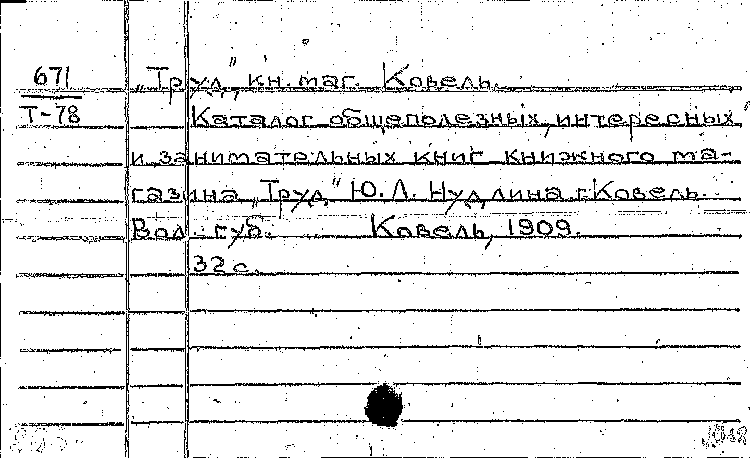 671
Т-78
„Труд", кн. маг. Ковель.
Каталог общеполезных, интересных
и занимательных книг книжного ма-
газина „Труд" Ю.Л. Нудлина г. Ковель
Вол. губ. Ковель, 1909.
32 с.